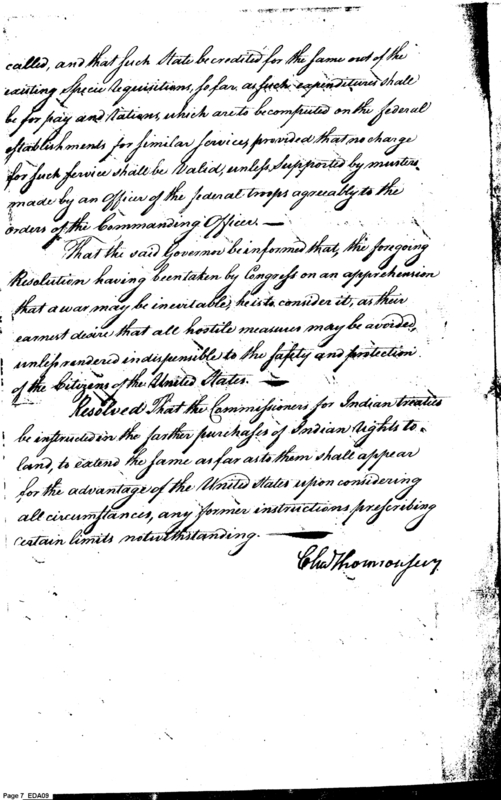 called, and that such State be credited for the same out of the
existing Specie requisitions, so far as such expenditures shall
be for pay and rations, which are to be computed on the federal
establishments for similar services, provided that no charge
for such service shall be Valid, unless Supported by musters
made by an Officer of the federal troops agreeably to the
orders of the Commanding Officer. —
That the said Governor be informed that, the foregoing
Resolution having been taken by Congress on an apprehension
that a war may be inevitable, he is to consider it, as their
earnest desire that all hostile measures may be avoided,
unless rendered indispensible to the safety and protection
of the Citizens of the United States. —
Resolved That the Commissioners for Indian treaties
be instructed in the farther purchases of Indian rights to
land, to extend the same as far as to them shall appear
for the advantage of the United States upon considering
all circumstances, any former instructions prescribing
certain limits notwithstanding. —
Cha Thomson Secy
Page 7_EDA09